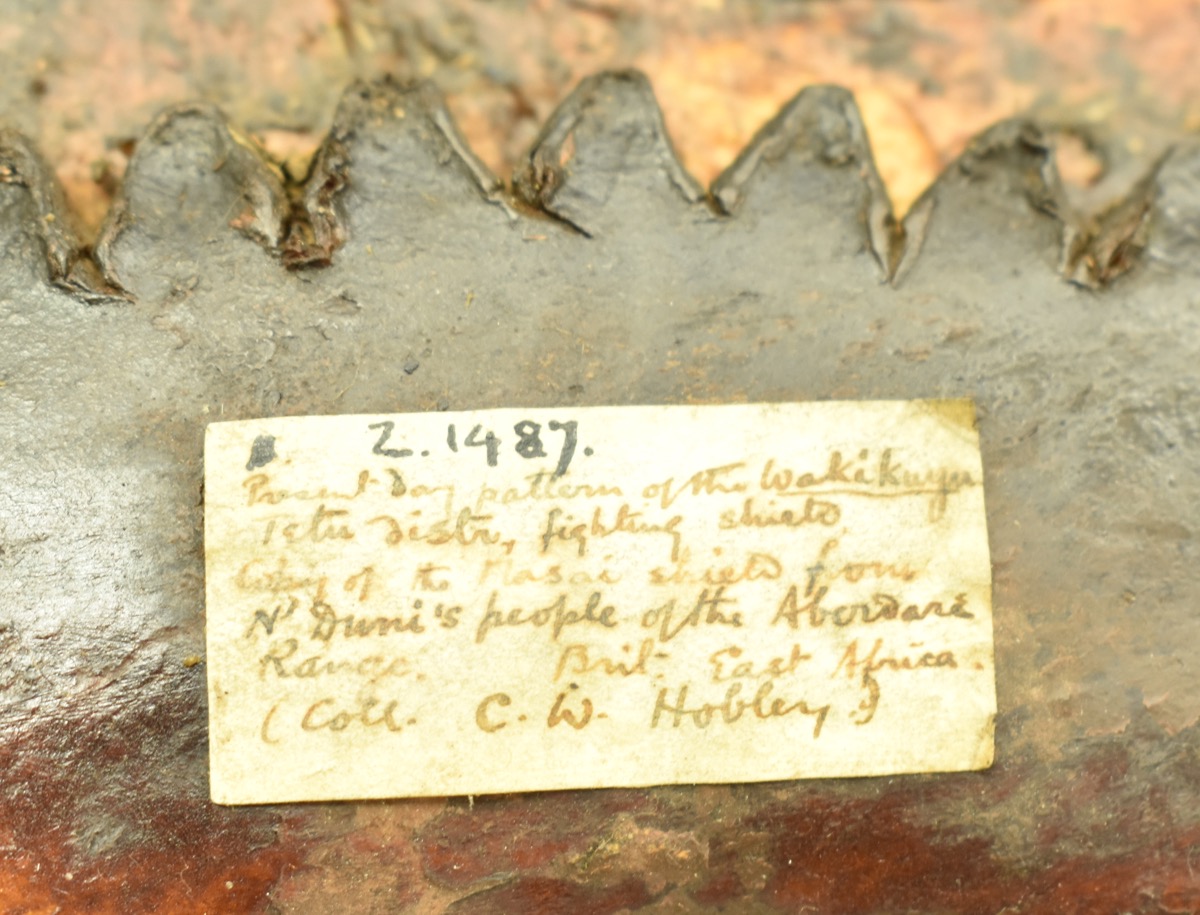 Z. 1487.
Present day pattern of the Wakikuyu
Tetu distr, fighting shield
Copy of the Masai shield from
N'Duni's people of the Aberdare
Range. Brit. East Africa.
(Coll. C. W. Hobley.)